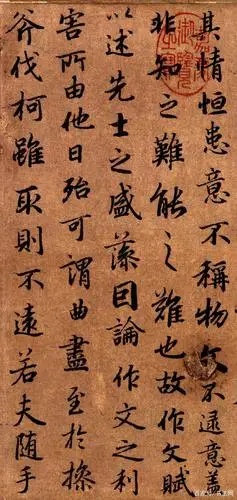 其情恒患意不稱物文不逮意蓋
非知之難能之難也故作文賦
以述先士之盛藻因論作文之利
害所由他日殆可謂曲盡至於操
斧伐柯雖取則不遠若夫随手